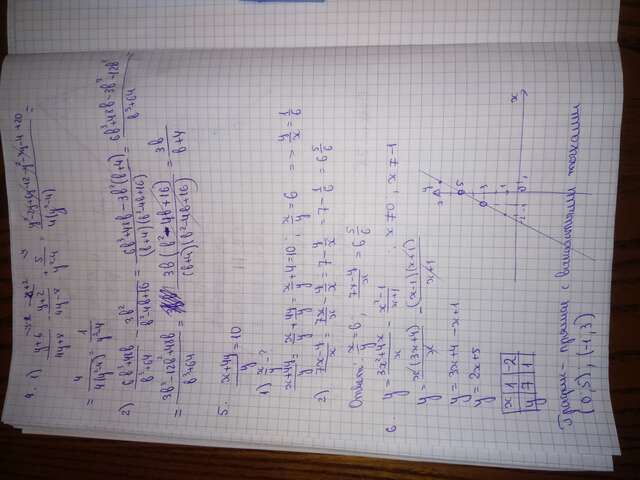 4. 1)
= 4/(4(y²-4)) = 1/(y²-4)
2) (6b²+48b)/(b³+64) - 3b²/(b²-4b+16) = (6b²+48b-3b²(b+4))/((b+4)(b²-4b+16)) = (6b²+48b-3b³-12b²)/(b³+64) =
5. (x+4y)/y = 10
1) x/y - ?
(x+4y)/y = x/y + 4y/y = x/y + 4 = 10, x/y = 6 => y/x = 1/6
2) (7x-y)/x = 7x/x - y/x = 7 - y/x = 7 - 1/6 = 6 5/6
Ответ: x/y = 6, (7x-y)/x = 6 5/6
6. y = (3x²+4x)/x - (x²-1)/(x+1) x≠0, x≠-1
y = x(3x+4)/x - (x-1)(x+1)/(x+1)
y = 3x+4 - x+1
y = 2x+5
x 1 -2
y 7 1
График - прямая с выколотыми точками
(0,5), (-1,3)